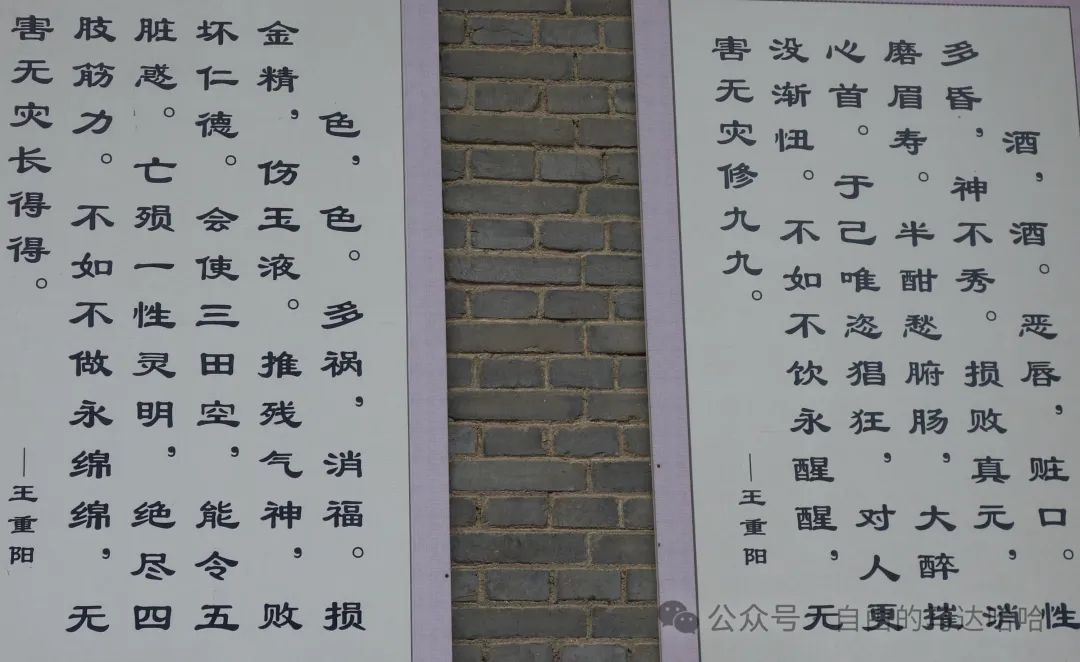 酒，酒。恶唇，赃口。性
多昏，神不秀。损败真元，消
磨眉寿。半酣愁腑肠，大醉摧
心首。于己唯恣猖狂，对人更
没渐忸。不如不饮永醒醒，无
害无灾修九九。
—王重阳
色，色。多祸，消福。损
金精，伤玉液。推残气神，败
坏仁德。会使三田空，能令五
脏惑。亡殒一性灵明，绝尽四
肢筋力。不如不做永绵绵，无
害无灾长得得。
—王重阳
公众号